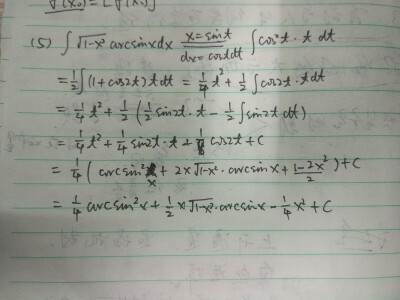 f'(x₀) = [f'(x₀)]
(5) ∫√1-x² arcsinxdx x=sint dx=costdt ∫cos²t · t dt
= 1/2 ∫(1+cos2t) t dt = 1/4 t² + 1/2 ∫cos2t · t dt
= 1/4 t² + 1/2 (1/2 sin2t · t - 1/2 ∫sin2t dt)
= 1/4 t² + 1/4 sin2t · t + 1/8 cos2t + C
= 1/4 (arcsin²x + 2x√1-x² · arcsinx + 1-2x²/2) + C
= 1/4 arcsin²x + 1/2 x√1-x² · arcsinx - 1/4 x² + C